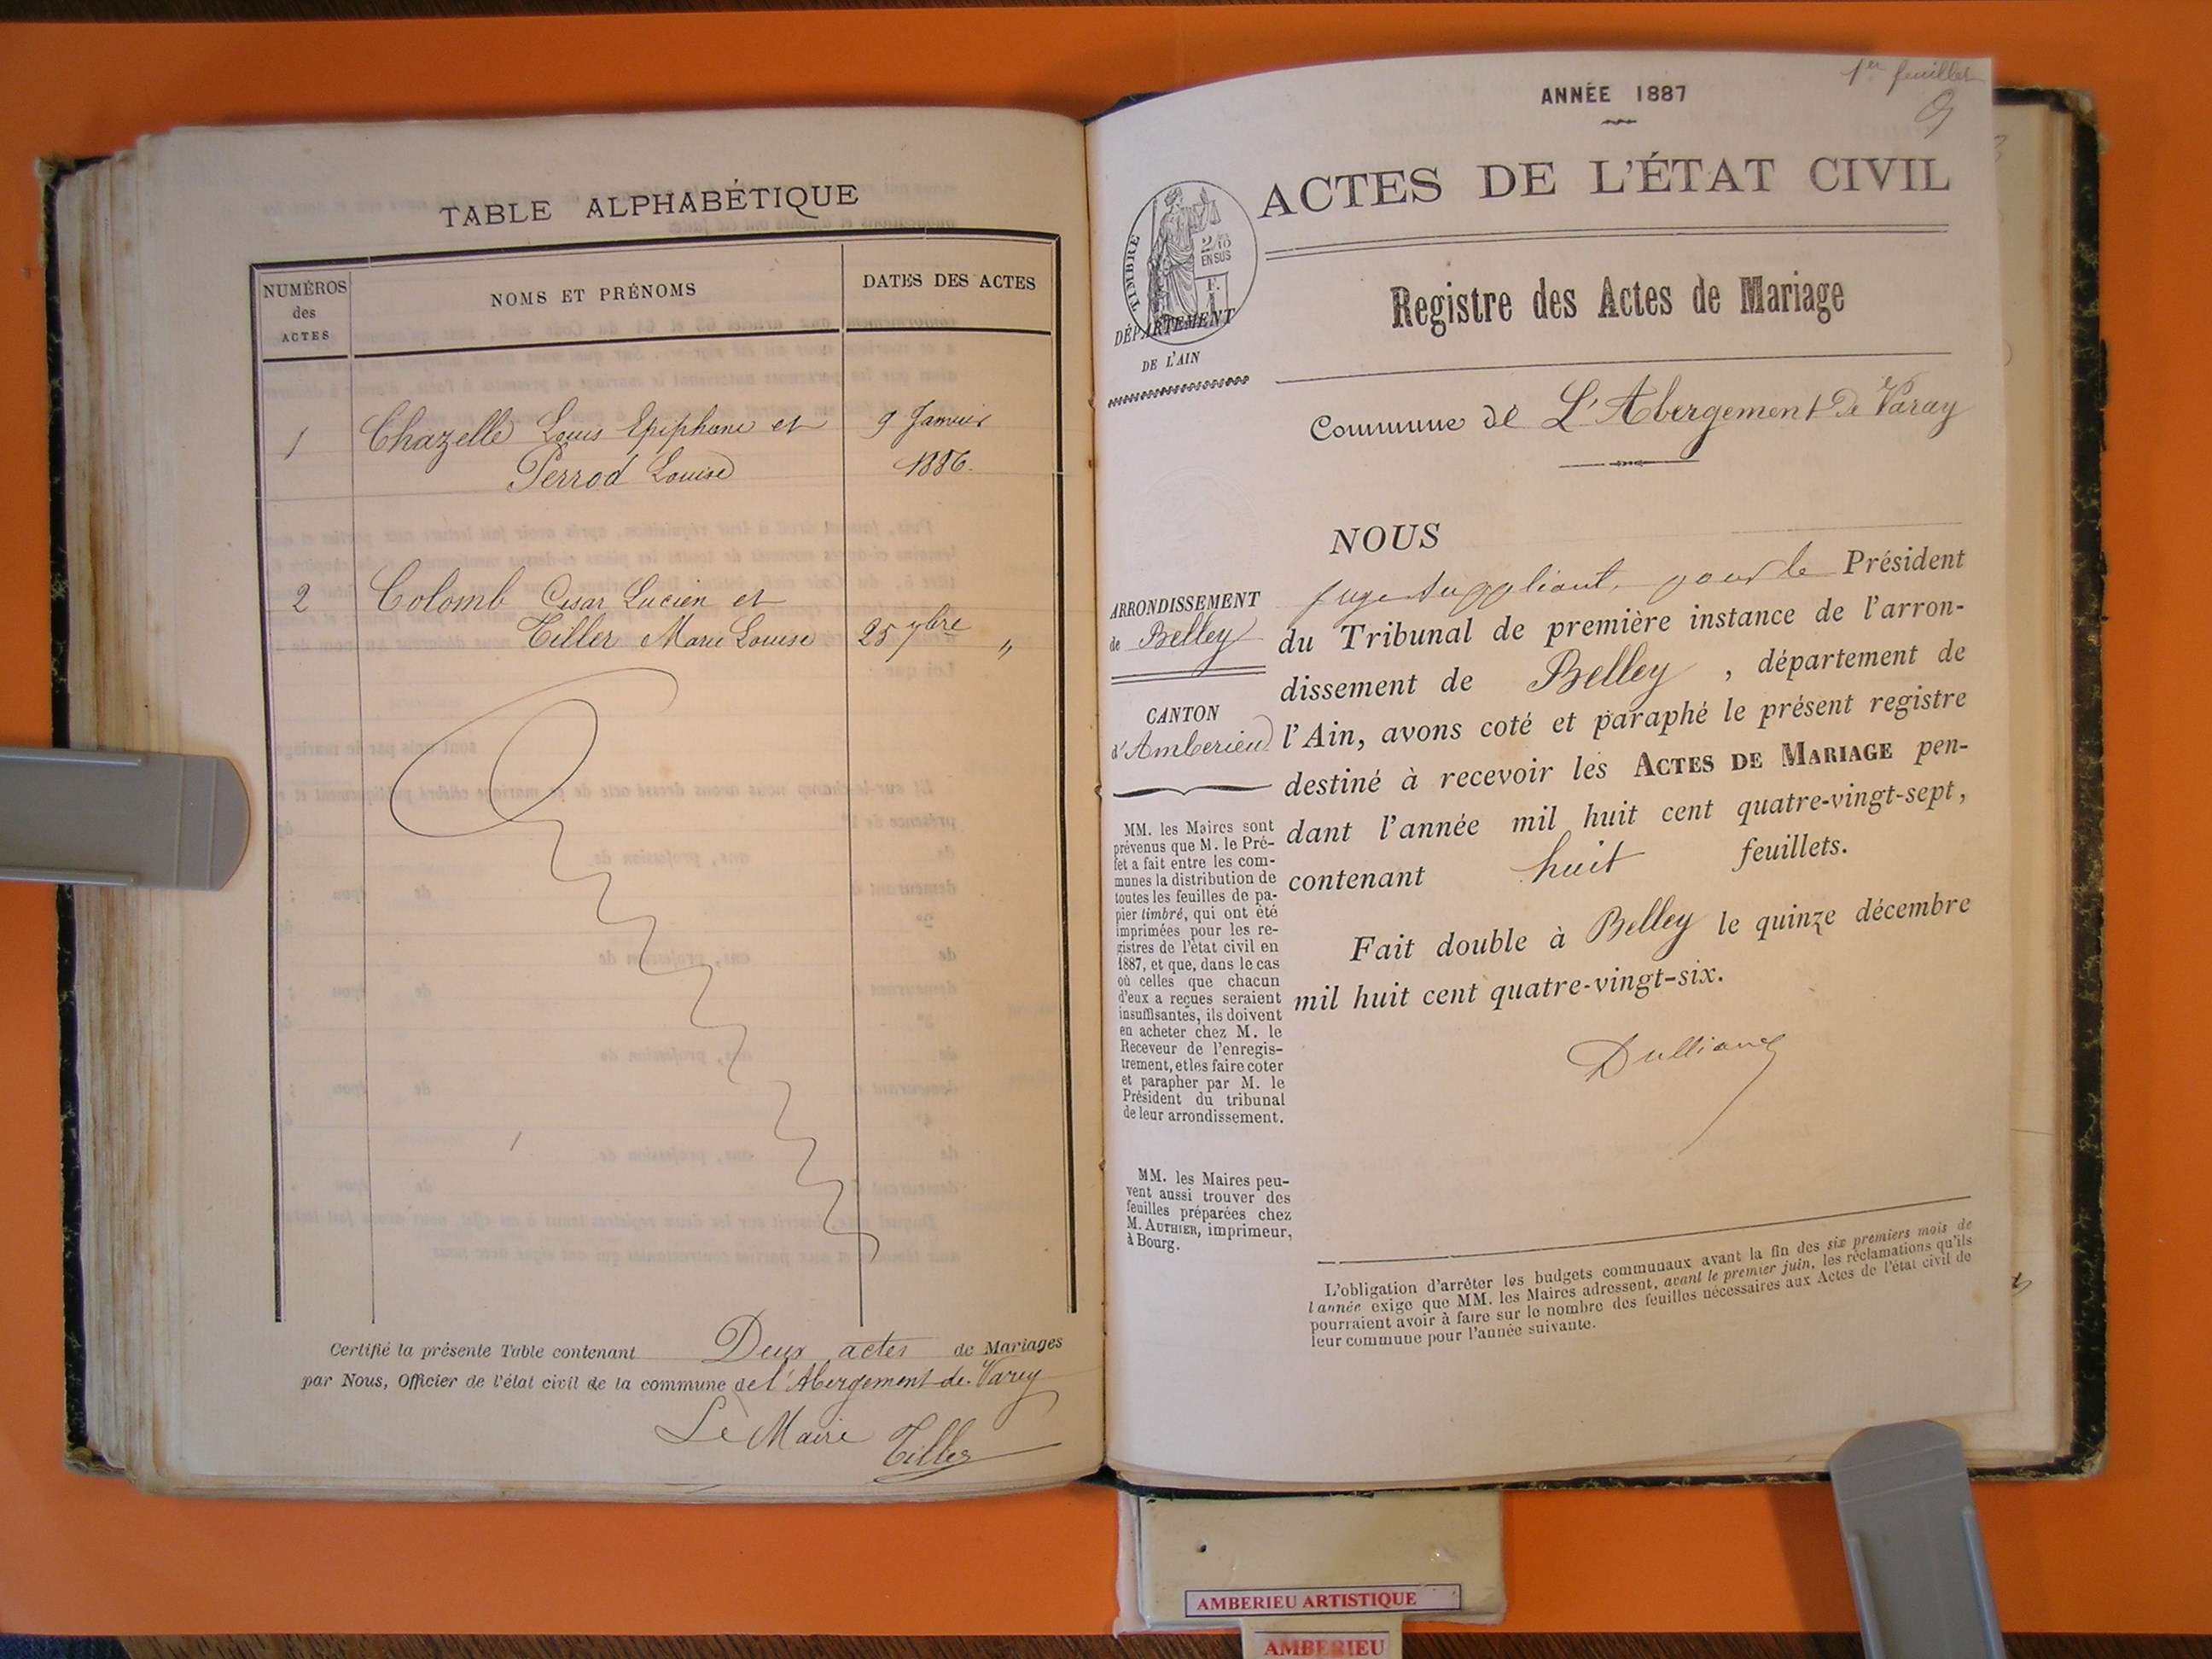 TABLE ALPHABÉTIQUE
NUMÉROS
des
ACTES
NOMS ET PRÉNOMS
DATES DES ACTES
1
Chazelle Louis Epiphane et
9 Janvier
Perrod Louise
1886.
2
Colomb César Lucien et
Tiller Marie Louise
25 7bre "
Certifié la présente Table contenant Deux actes de Mariages
par Nous, Officier de l'état civil de la commune de l'Abergement de Varey
Le Maire Tiller
1er feuillet
ANNÉE 1887
ACTES DE L'ÉTAT CIVIL
TIMBRE
2/10
EN SUS
F.
1
DÉPARTEMENT
DE L'AIN
Registre des Actes de Mariage
Commune de L'Abergement De Varay
NOUS
juge suppléant, pour le Président
du Tribunal de première instance de l'arron-
dissement de Belley, département de
l'Ain, avons coté et paraphé le présent registre
destiné à recevoir les ACTES DE MARIAGE pen-
dant l'année mil huit cent quatre-vingt-sept,
contenant huit feuillets.
Fait double à Belley le quinze décembre
mil huit cent quatre-vingt-six.
ARRONDISSEMENT
de Belley
CANTON
d'Amberieu
MM. les Maires sont
prévenus que M. le Pré-
fet a fait entre les com-
munes la distribution de
toutes les feuilles de pa-
pier timbré, qui ont été
imprimées pour les re-
gistres de l'état civil en
1887, et que, dans le cas
où celles que chacun
d'eux a reçues seraient
insuffisantes, ils doivent
en acheter chez M. le
Receveur de l'enregis-
trement, et les faire coter
et parapher par M. le
Président du tribunal
de leur arrondissement.
MM. les Maires peu-
vent aussi trouver des
feuilles préparées chez
M. AUTHIER, imprimeur,
à Bourg.
L'obligation d'arrêter les budgets communaux avant la fin des six premiers mois de
l'année exige que MM. les Maires adressent, avant le premier juin, les réclamations qu'ils
pourraient avoir à faire sur le nombre des feuilles nécessaires aux Actes de l'état civil de
leur commune pour l'année suivante.
AMBERIEU ARTISTIQUE
AMBERIEU